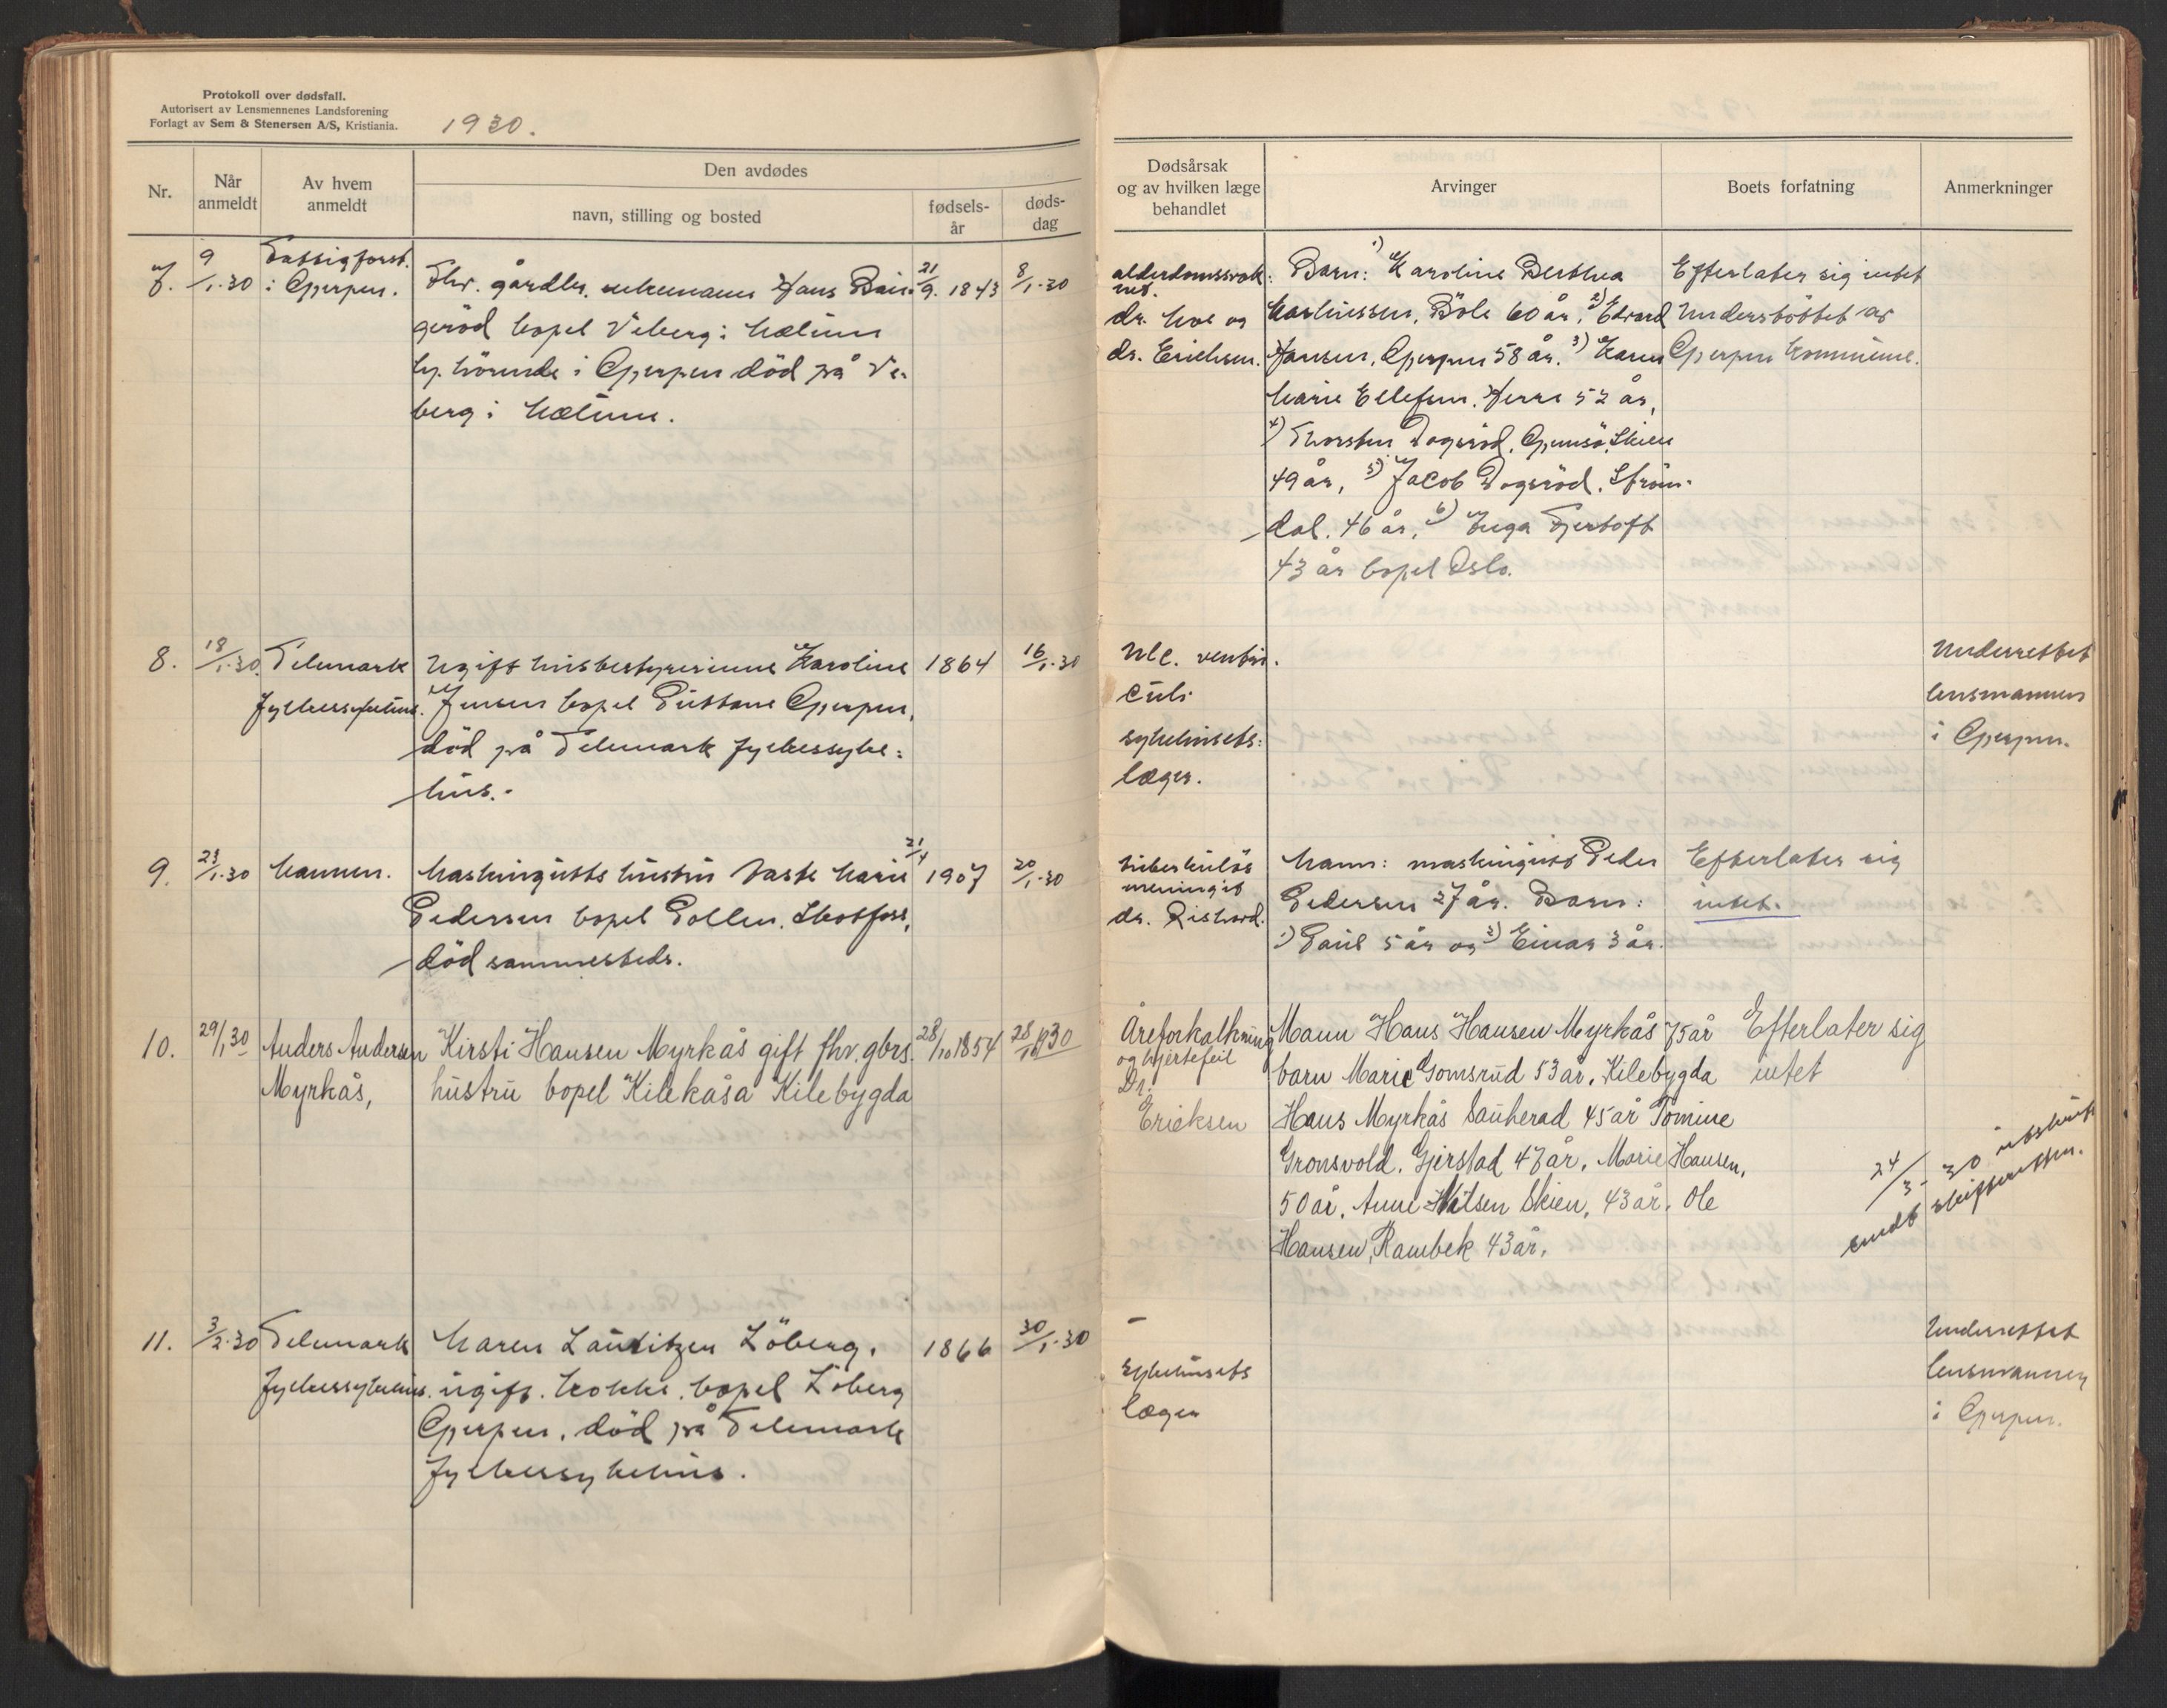 Protokoll over dødsfall.
Autorisert av Lensmennenes Landsforening
Forlagt av Sem & Stenersen A/S, Kristiania.
1930.
Nr.
Når anmeldt
Av hvem anmeldt
Den avdødes
navn, stilling og bosted
fødsels-år
døds-dag
Dødsårsak og av hvilken læge behandlet
Arvinger
Boets forfatning
Anmerkninger
7.
9/1.30
Fattigforst.
i Gjerpen.
Fhv. gårdbr. enkemann Hans
geröd bopel Veberg i Mælum
hj. hörende i Gjerpen död på Ve-
berg i Mælum.
21/9. 1843
8/1.30
alderdomssvak:
het.
dr. Hoe og
dr. Erichsen.
Barn: 1) Karoline Berthea
Mathissen, Böle 60 år, 2) Edvard
Hansen, Gjerpen 58 år. 3) Karen
Marie Ellefsen, Herre 52 år,
4) Thorsten Dogeröd, Gjemsö, Skien
49 år, 5) Jacob Dogeröd, Ström-
dal. 46 år, 6) Inga Fjertoft
43 år bopel Oslo.
Efterlater sig intet
Understöttet av
Gjerpen kommune.
8.
18/1.30.
Telemark
fylkessykehus.
Ugift husbestyrerinne Karoline
Jensen bopel Gjerpen,
död på Telemark fylkessyke=
hus.-
1864
16/1.30
Ulc. ventri-
culi
sykehusets:
læger.
Underrettet
lensmannen
i Gjerpen.
9.
23/1.30
Mannen.
Maskingutts hustru Marie
Pedersen bopel Pollen, Skotfoss,
död sammesteds.
21/4 1907
20/1.30
tuberkulös
meningit
dr. Rishovd.
Mann: maskingutt Peder
Pedersen 27 år. Barn:
1) Paul 5 år og 2) Einar 3 år.
Efterlater sig
intet.
10.
29/1 30
Anders Andersen
Myrkås,
Kirsti Hansen Myrkås gift fhv. gbrs.
hustru bopel Kilekåsa Kilebygda
28/10 1854
28/1 1930
Åreforkalkning
og hjertefeil
Dr.
Ericksen
Mann Hans Hansen Myrkås 75 år
barn Marie Gomsrud 53 år, Kilebygda
Hans Myrkås Sauherad 45 år Tomine
Gronsvold. Gjerstad 47 år, Marie Hansen,
50 år, Anne Skien, 43 år, Ole
Hansen, Rambek 43 år,
Efterlater sig
intet
24/3-30 utskrift
sendt skifteretten.
11.
3/2.30
Telemark
fylkessykehus.
Maren Lauritzen Löberg,
ugift. kokke, bopel Löberg
Gjerpen, död på Telemark
fylkessykehus.
1866
30/1.30
-
sykehusets
læger
Underrettet
lensmannen
i Gjerpen.